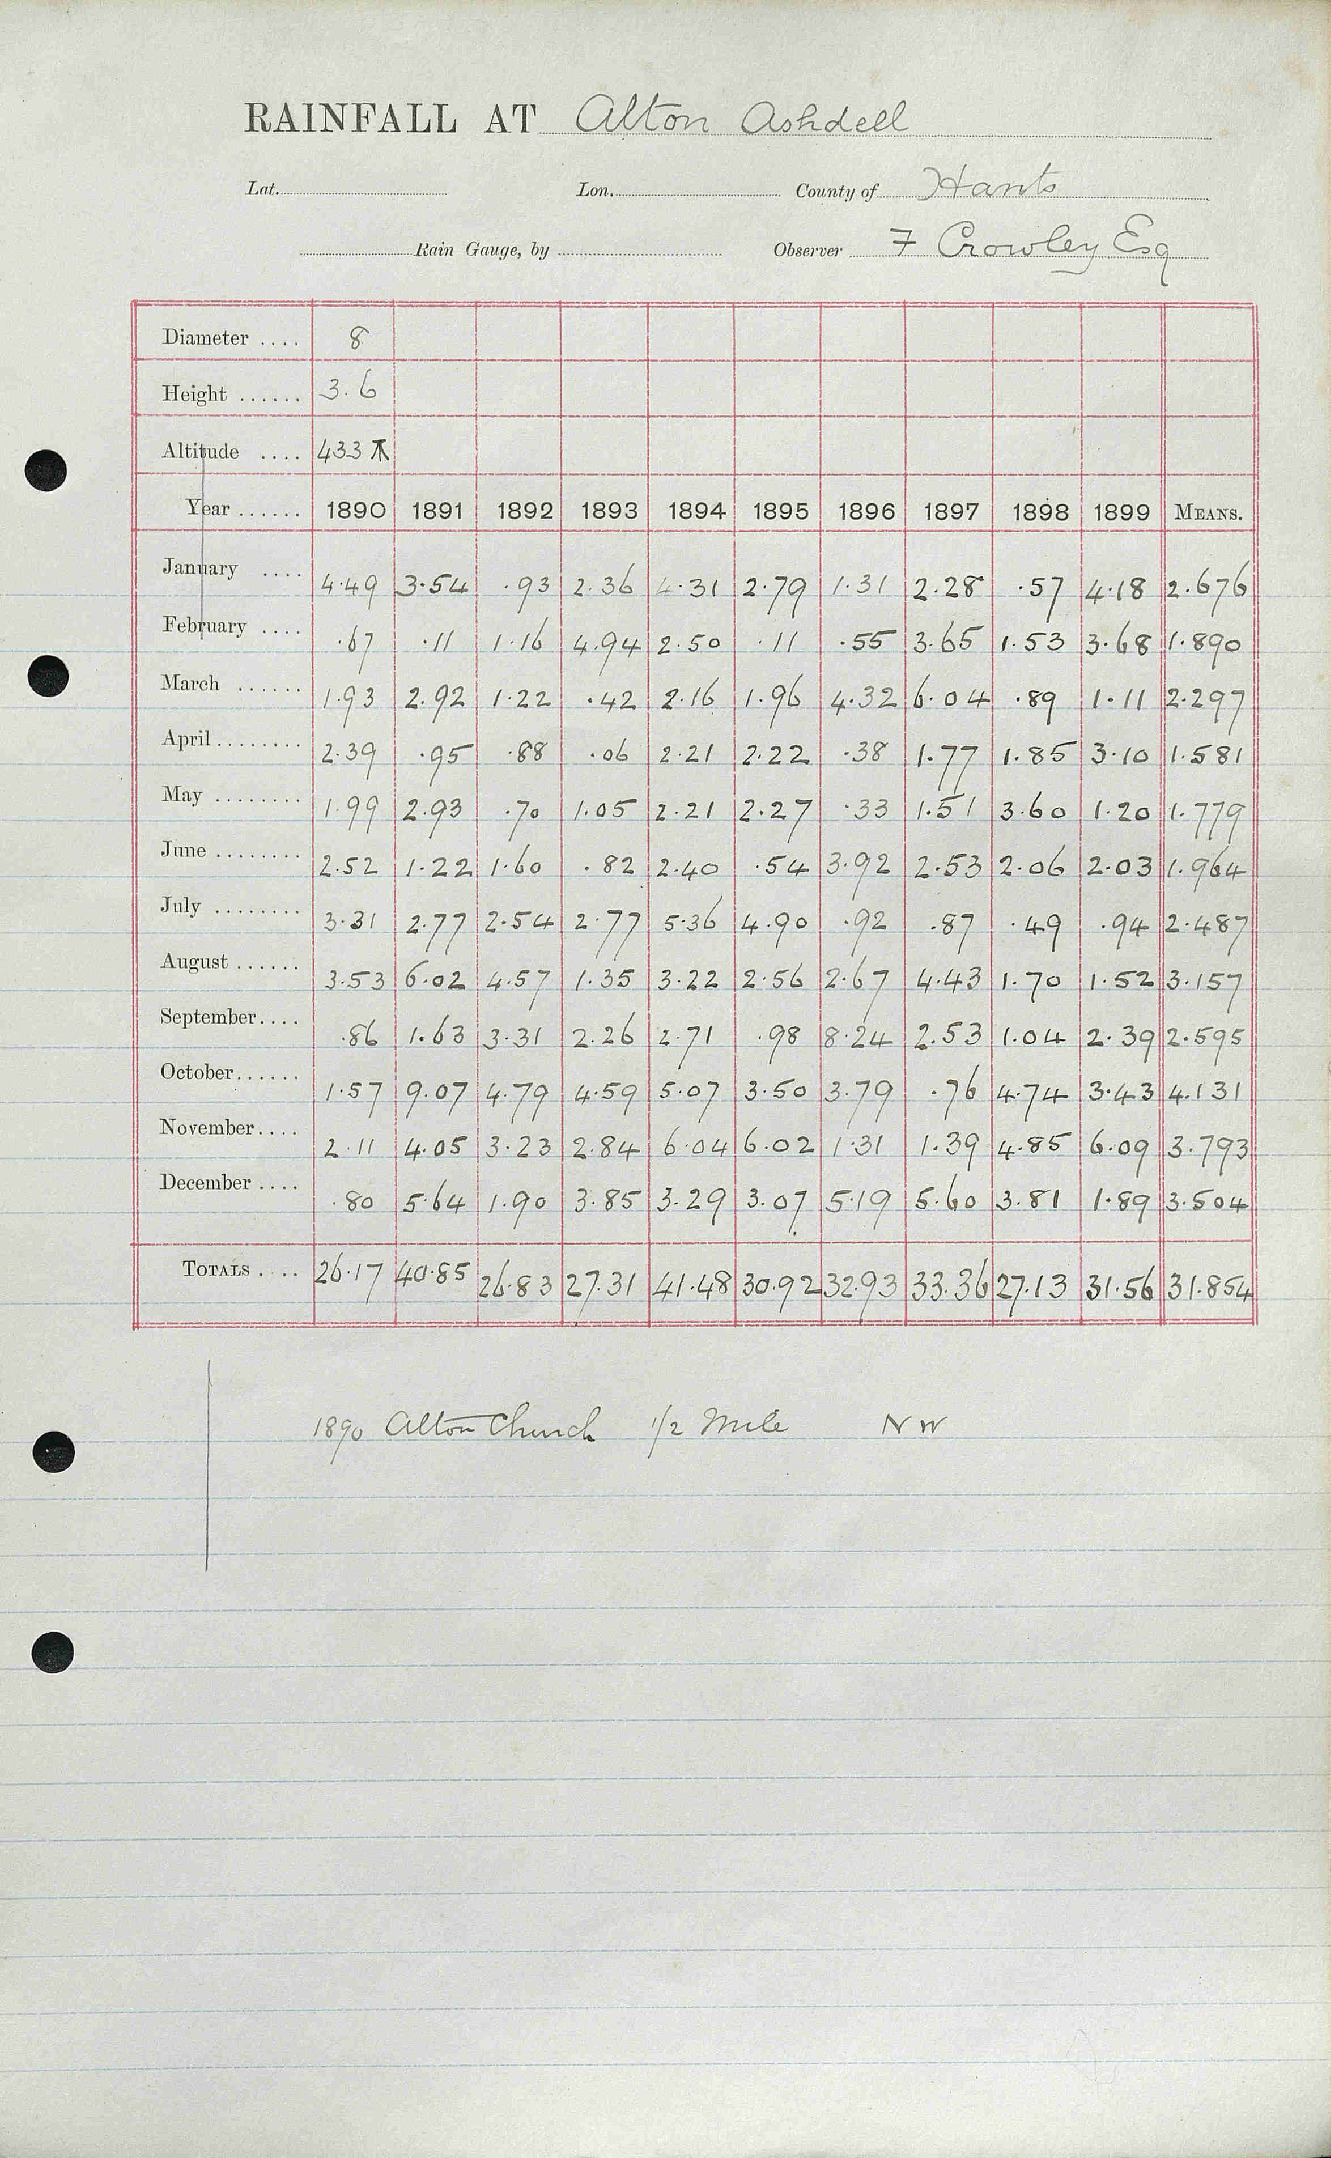 RAINFALL AT Alton Ashdell
Lat. Lon. County of Hants
Rain Gauge, by Observer F Crowley Esq
Diameter .... 8
Height ...... 3.6
Altitude .... 433
Year ...... 1890 1891 1892 1893 1894 1895 1896 1897 1898 1899 MEANS.
January .... 4.49 3.54 .93 2.36 4.31 2.79 1.31 2.28 .57 4.18 2.676
February .... .67 .11 1.16 4.94 2.50 .11 .55 3.65 1.53 3.68 1.890
March ...... 1.93 2.92 1.22 .42 2.16 1.96 4.32 6.04 .89 1.11 2.297
April ........ 2.39 .95 .88 .06 2.21 2.22 .38 1.77 1.85 3.10 1.581
May ........ 1.99 2.93 .70 1.05 2.21 2.27 .33 1.51 3.60 1.20 1.779
June ........ 2.52 1.22 1.60 .82 2.40 .54 3.92 2.53 2.06 2.03 1.964
July ........ 3.31 2.77 2.54 2.77 5.36 4.90 .92 .87 .49 .94 2.487
August ...... 3.53 6.02 4.57 1.35 3.22 2.56 2.67 4.43 1.70 1.52 3.157
September .... .86 1.63 3.31 2.26 2.71 .98 8.24 2.53 1.04 2.39 2.595
October ...... 1.57 9.07 4.79 4.59 5.07 3.50 3.79 .76 4.74 3.43 4.131
November .... 2.11 4.05 3.23 2.84 6.04 6.02 1.31 1.39 4.85 6.09 3.793
December .... .80 5.64 1.90 3.85 3.29 3.07 5.19 5.60 3.81 1.89 3.504
TOTALS .... 26.17 40.85 26.83 27.31 41.48 30.92 32.93 33.36 27.13 31.56 31.854
1890 Alton Church 1/2 Mile NW